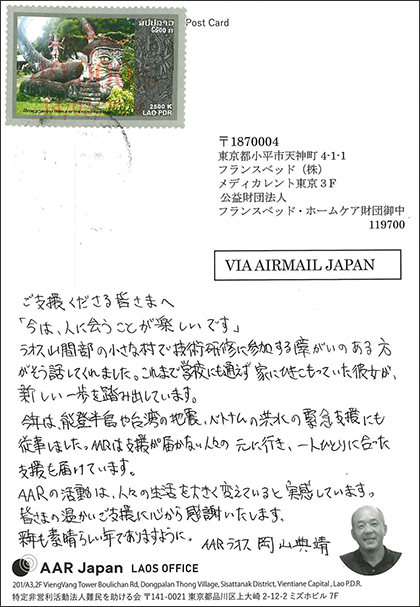 Post Card
ສປປລາວ
2500 K
LAO-PDR
〒1870004
東京都小平市天神町 4-1-1
フランスベッド（株）
メディカレント東京３Ｆ
公益財団法人
フランスベッド・ホームケア財団御中
119700
VIA AIRMAIL JAPAN
ご支援くださる皆さまへ
「今は、人に会うことが楽しいです」
ラオス山間部の小さな村で技術研修に参加する障がいのある方
がそう話してくれました。これまで学校にも通えず家にひきこもっていた彼女が、
新しい一歩を踏み出しています。
今年は、能登半島や台湾の地震、ベトナムの洪水の緊急支援にも
従事しました。AARは支援が届かない人々の元に行き、一人ひとりに合った
支援も届けています。
AARの活動は、人々の生活を大きく変えていると実感しています。
皆さまの温かいご支援に心から感謝いたします。
新年も素晴らしい年でありますように。
AARラオス 岡山典靖
AAR Japan LAOS OFFICE
201/A3,2F ViengVang Tower Boulichan Rd, Dongpalan Thong Village, Sisattanak District, Vientiane Capital , Lao P.D.R.
特定非営利活動法人難民を助ける会 〒141-0021 東京都品川区上大崎 2-12-2 ミズホビル 7F